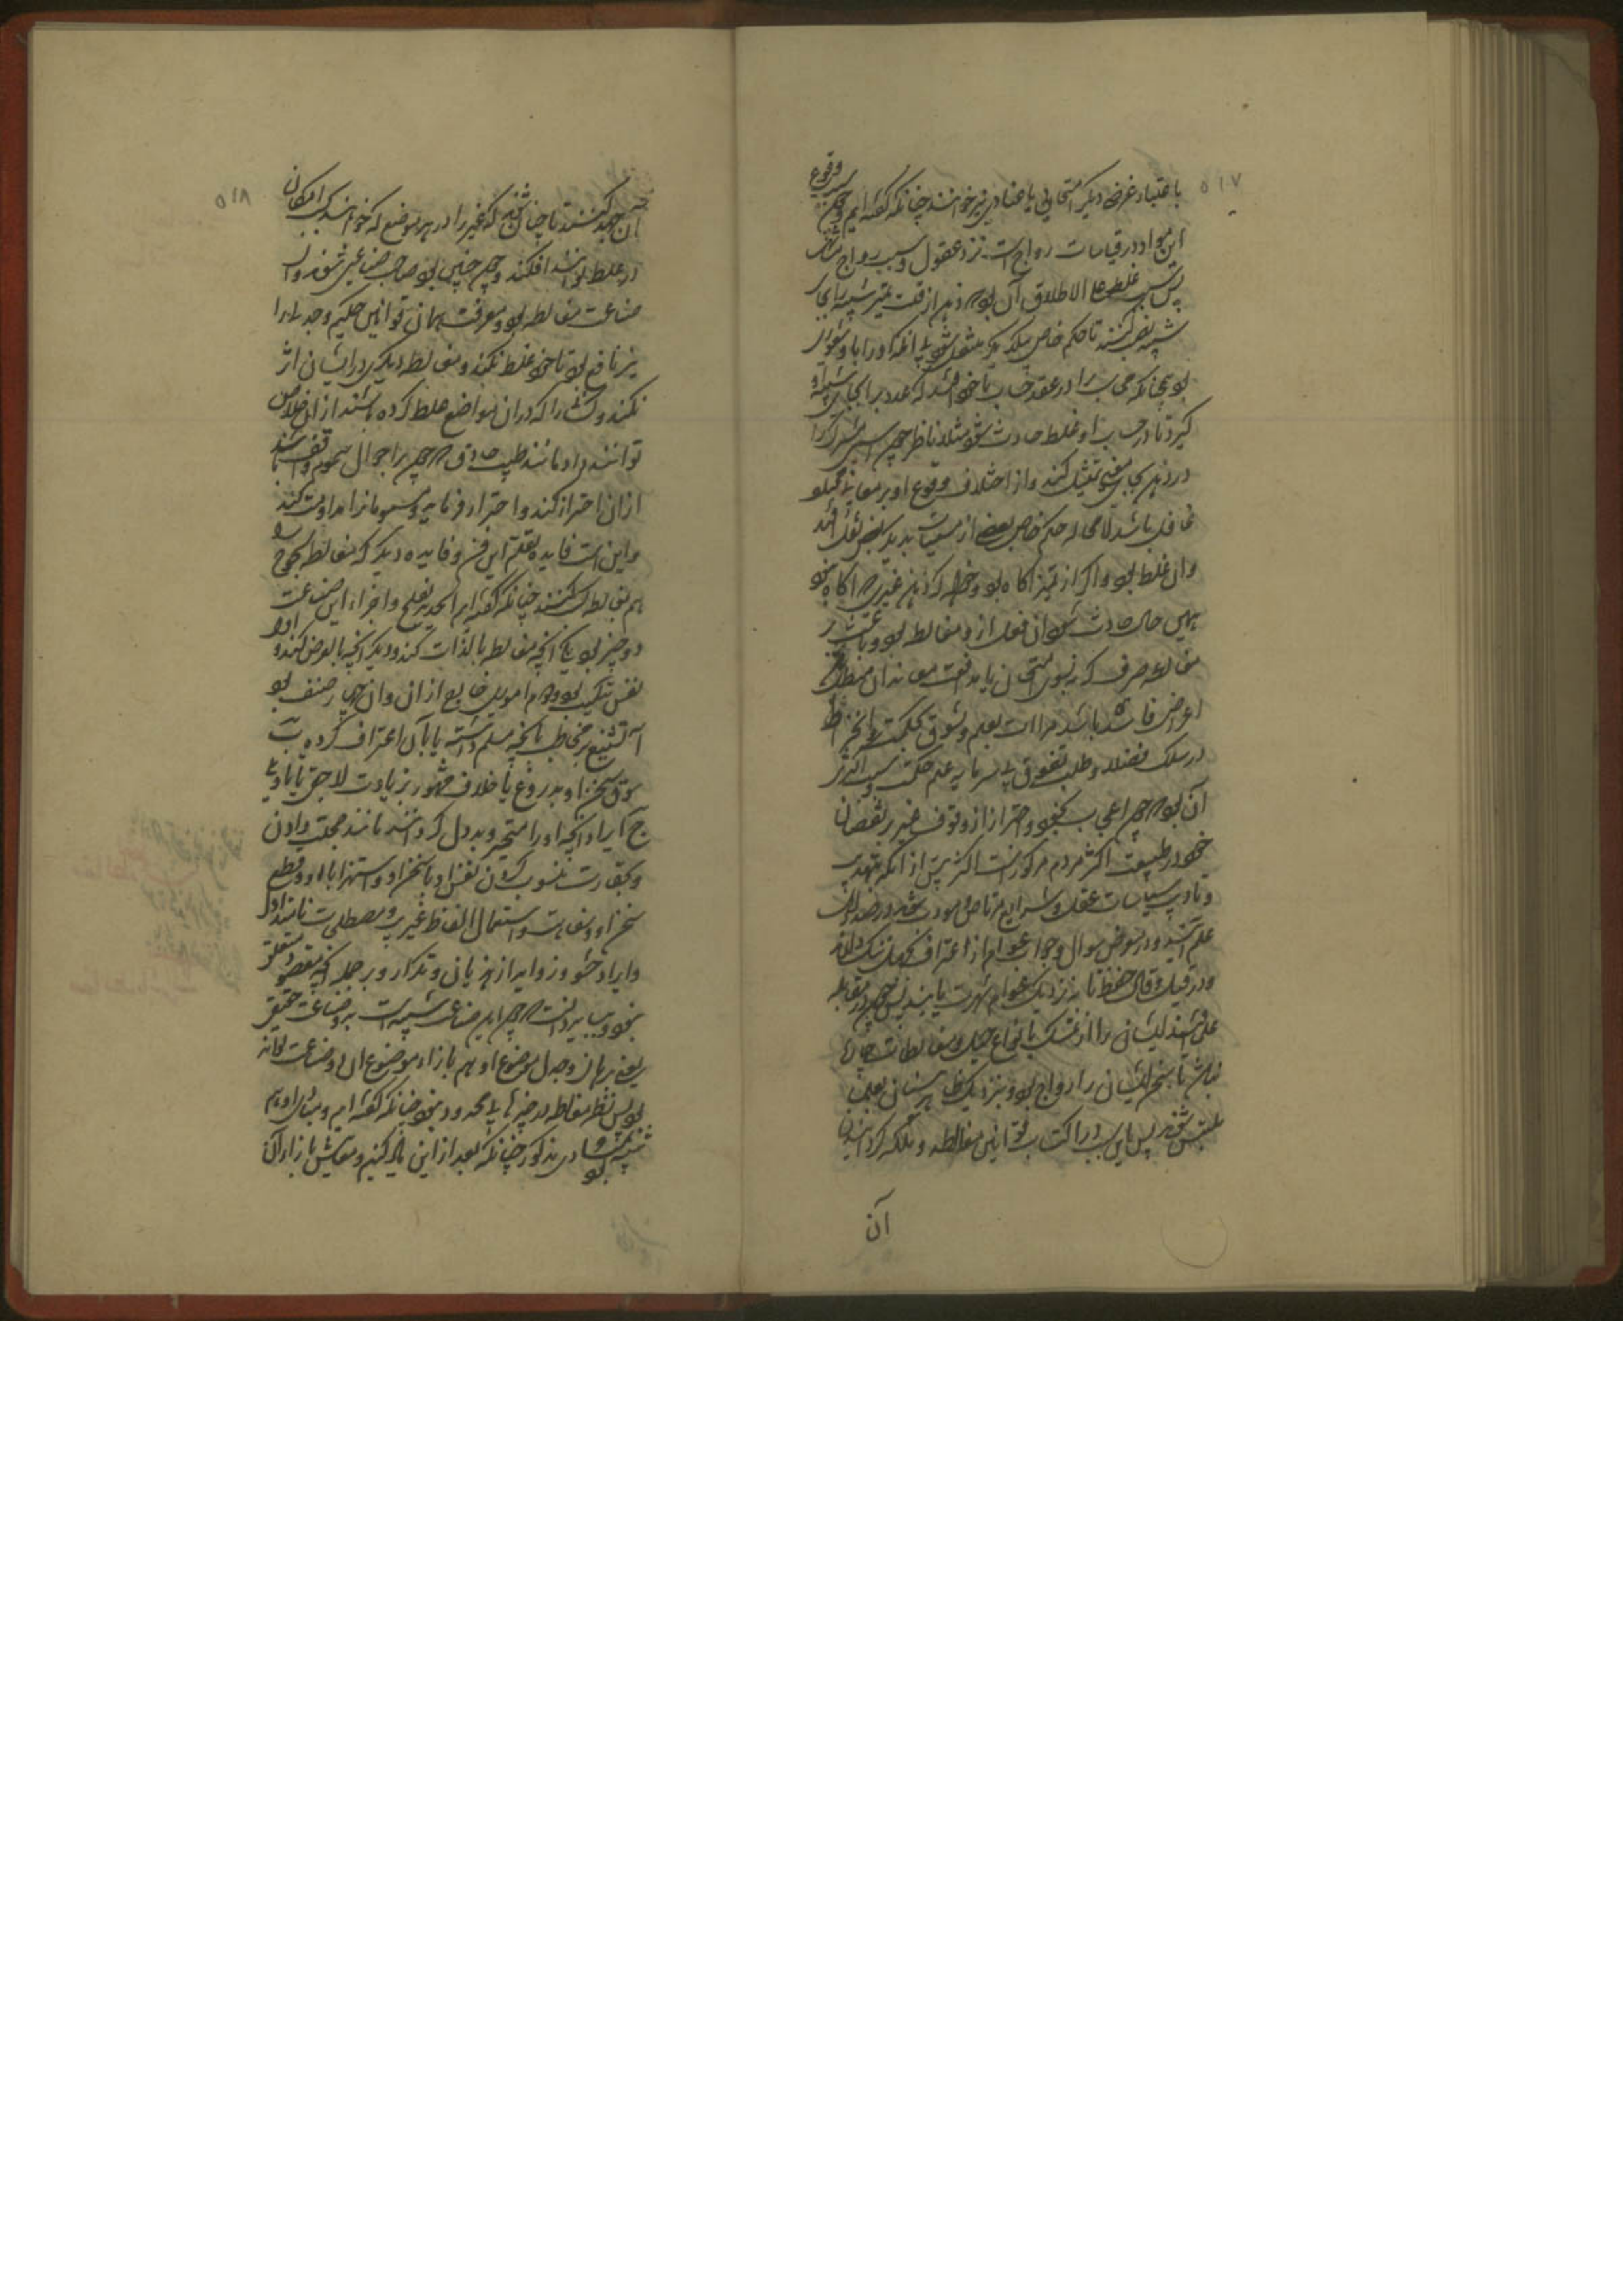 ۵۱۷
باعتبار غرض دیگر امتحانی یا عنادی نیز خوانند چنانکه گفته‌ایم و چون سبب وقوع
این مواد در قیاسات رواج است نزد عقول و سبب رواج مشابهت
پس سبب غلط علی الاطلاق آن بود که ذهن از قلت تمیز شبیه را بجای
شبیه نصب کنند تا حکم خاص بیکدیگر مشغول شود یا آنکه او را با و شعوری
بود چنانکه محاسب را در عقد حساب باخود افتد که عددی را بجای شبیه او
گیرد تا در حساب او غلط حادث شود مثلا ناظر چون اسمی مشترک را
در ذهن بجای معنی تمثیل کند و از اختلاف وقوع او بر معانی مختلف
غافل باشد لامحاله حکم خاص بعضی از مسمیات بدیگر بعض نقل افتد
و آن غلط بود و اگر از تمیز آگاه بود و خواهد که ذهن غیری که آگاه نبود
همین حال حادث شود آن فعل ازو مغالطه بود و باعث بر
مغالطه صرف که نه بسوی امتحان یا مدافعت معاندان
اغراض فاسد باشد مراآت بعلم و تشوق بحکمت و انخراط
در سلک فضلا و طلب تفوق بی سرمایه علم و حکمت و سبب اکثری
آن بود که چون اعجاب بخود و احتراز از وقوف غیر بر نقصان
خود در طبیعت اکثر مردم مرکوز است اکثر پیش از آنکه بتهذیب
و تادیب سیاسات عقلی و شرایع مرتاض و مؤدب شوند در صدد طلب
علم آیند و در معرض سوال و جواب عوام از اعتراف بجهل ننگ دارند
و در قیل و قال خوض نمایند تا نزدیک عوام شهرت یابند پس چون در مقابله
علما افتند ایشان را از تمسک بانواع حیل و مغالطات چاره
نباشد تا سخن ایشان را رواج بود و بنزدیک ظاهر بینان بعلما
ملتبس شوند پس باین سبب در اکتساب قوانین مغالطه و ملکه گردانیدن
آن
۵۱۸
آن جهد کنند تا چنان شوند که غیر را در هر موضع که خواهند بحسب امکان
در غلط توانند افکند و چون چنین بود صاحب صناعتی شوند و آن
صناعت مغالطه بود و معرفت همان قوانین حکیم و جدلی را
نیز نافع بود تا خود غلط نکند و مغالطه دیگری در ایشان اثر
نکند و کسانی را که در آن مواضع غلط کرده باشند از آن خلاص
توانند داد مانند طبیب حاذق که چون بر احوال سموم واقف باشد
از آن احتراز کند و احتراز فرماید و مسمومان را مداوات کند
و این است فایده تعلم این فن و فایده دیگر که مغالط لجوج را
هم بمغالطه ساکت کنند چنانکه گفته‌اند الحدید بالحدید یفلح و اجزاء این صناعت
دو چیز بود یکی آنچه مغالطه بالذات کند و دیگر آنچه بالعرض کند و اول
نفس تبکیت بود و دوم امور خارج از آن و آن چهار صنف بود
آ تشنیع بر مخاطب بآنچه مسلم داشته یا بآن اعتراف کرده ب
سوق سخن او بدروغ یا خلاف مشهور بزیادت لاحق یا تاویلی
ج ایراد آنچه او را متحیر و بددل گرداند مانند خجلت دادن
و بحقارت منسوب کردن نفس او یا سخن او و استهزا با او و قطع
سخن او و سفاهت و استعمال الفاظ غریب و مصطلحات نامتداول
د ایراد حشو و زواید از هذیان و تکرار و بر جمله آنچه بمقصود متعلق
نبود و بباید دانست که چون این صناعت شبیه است بدو صناعت حقیقی
یعنی برهان و جدل موضوع او هم بازاء موضوع آن دو صناعت تواند
بود پس نظر مغالطه در چیزهای محدود نبود چنانکه گفته‌ایم و مبادی او هم
شبیه بود بمبادی مذکور چنانکه بعد از این یاد کنیم و مسایلش بازاء آن